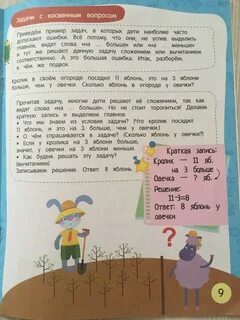 Задачи с косвенным вопросом
Приведём пример задач, в которых дети наиболее часто
допускают ошибки. Всё потому, что они, не успев выделить
главное, видят слова «на ... больше» или «на ... меньше»
и тут же решают данную задачу сложением или вычитанием
соответственно. А это большая ошибка. Итак, разберём,
в чём же подвох.
Кролик в своём огороде посадил 11 яблонь, это на 3 яблони
больше, чем у овечки. Сколько яблонь в огороде у овечки?
Прочитав задачу, многие дети решают её сложением, так как
видят слова «на ... больше». Но не стоит торопиться! Делаем
краткую запись и выделяем главное.
• Что мы знаем из условия задачи? (Что кролик посадил
11 яблонь, и это на 3 больше, чем у овечки.)
• О чём спрашивается в задаче? (Сколько яблонь у овечки?)
• Если у кролика на 3 яблони больше,
значит, у овечки на 3 яблони меньше.
• Как будем решать эту задачу?
(вычитанием)
Записываем решение. Ответ: 8 яблонь.
Краткая запись:
Кролик — 11 яб.
на 3 больше
Овечка — ? яб.
Решение:
11-3=8
Ответ: 8 яблонь у
овечки
?
9